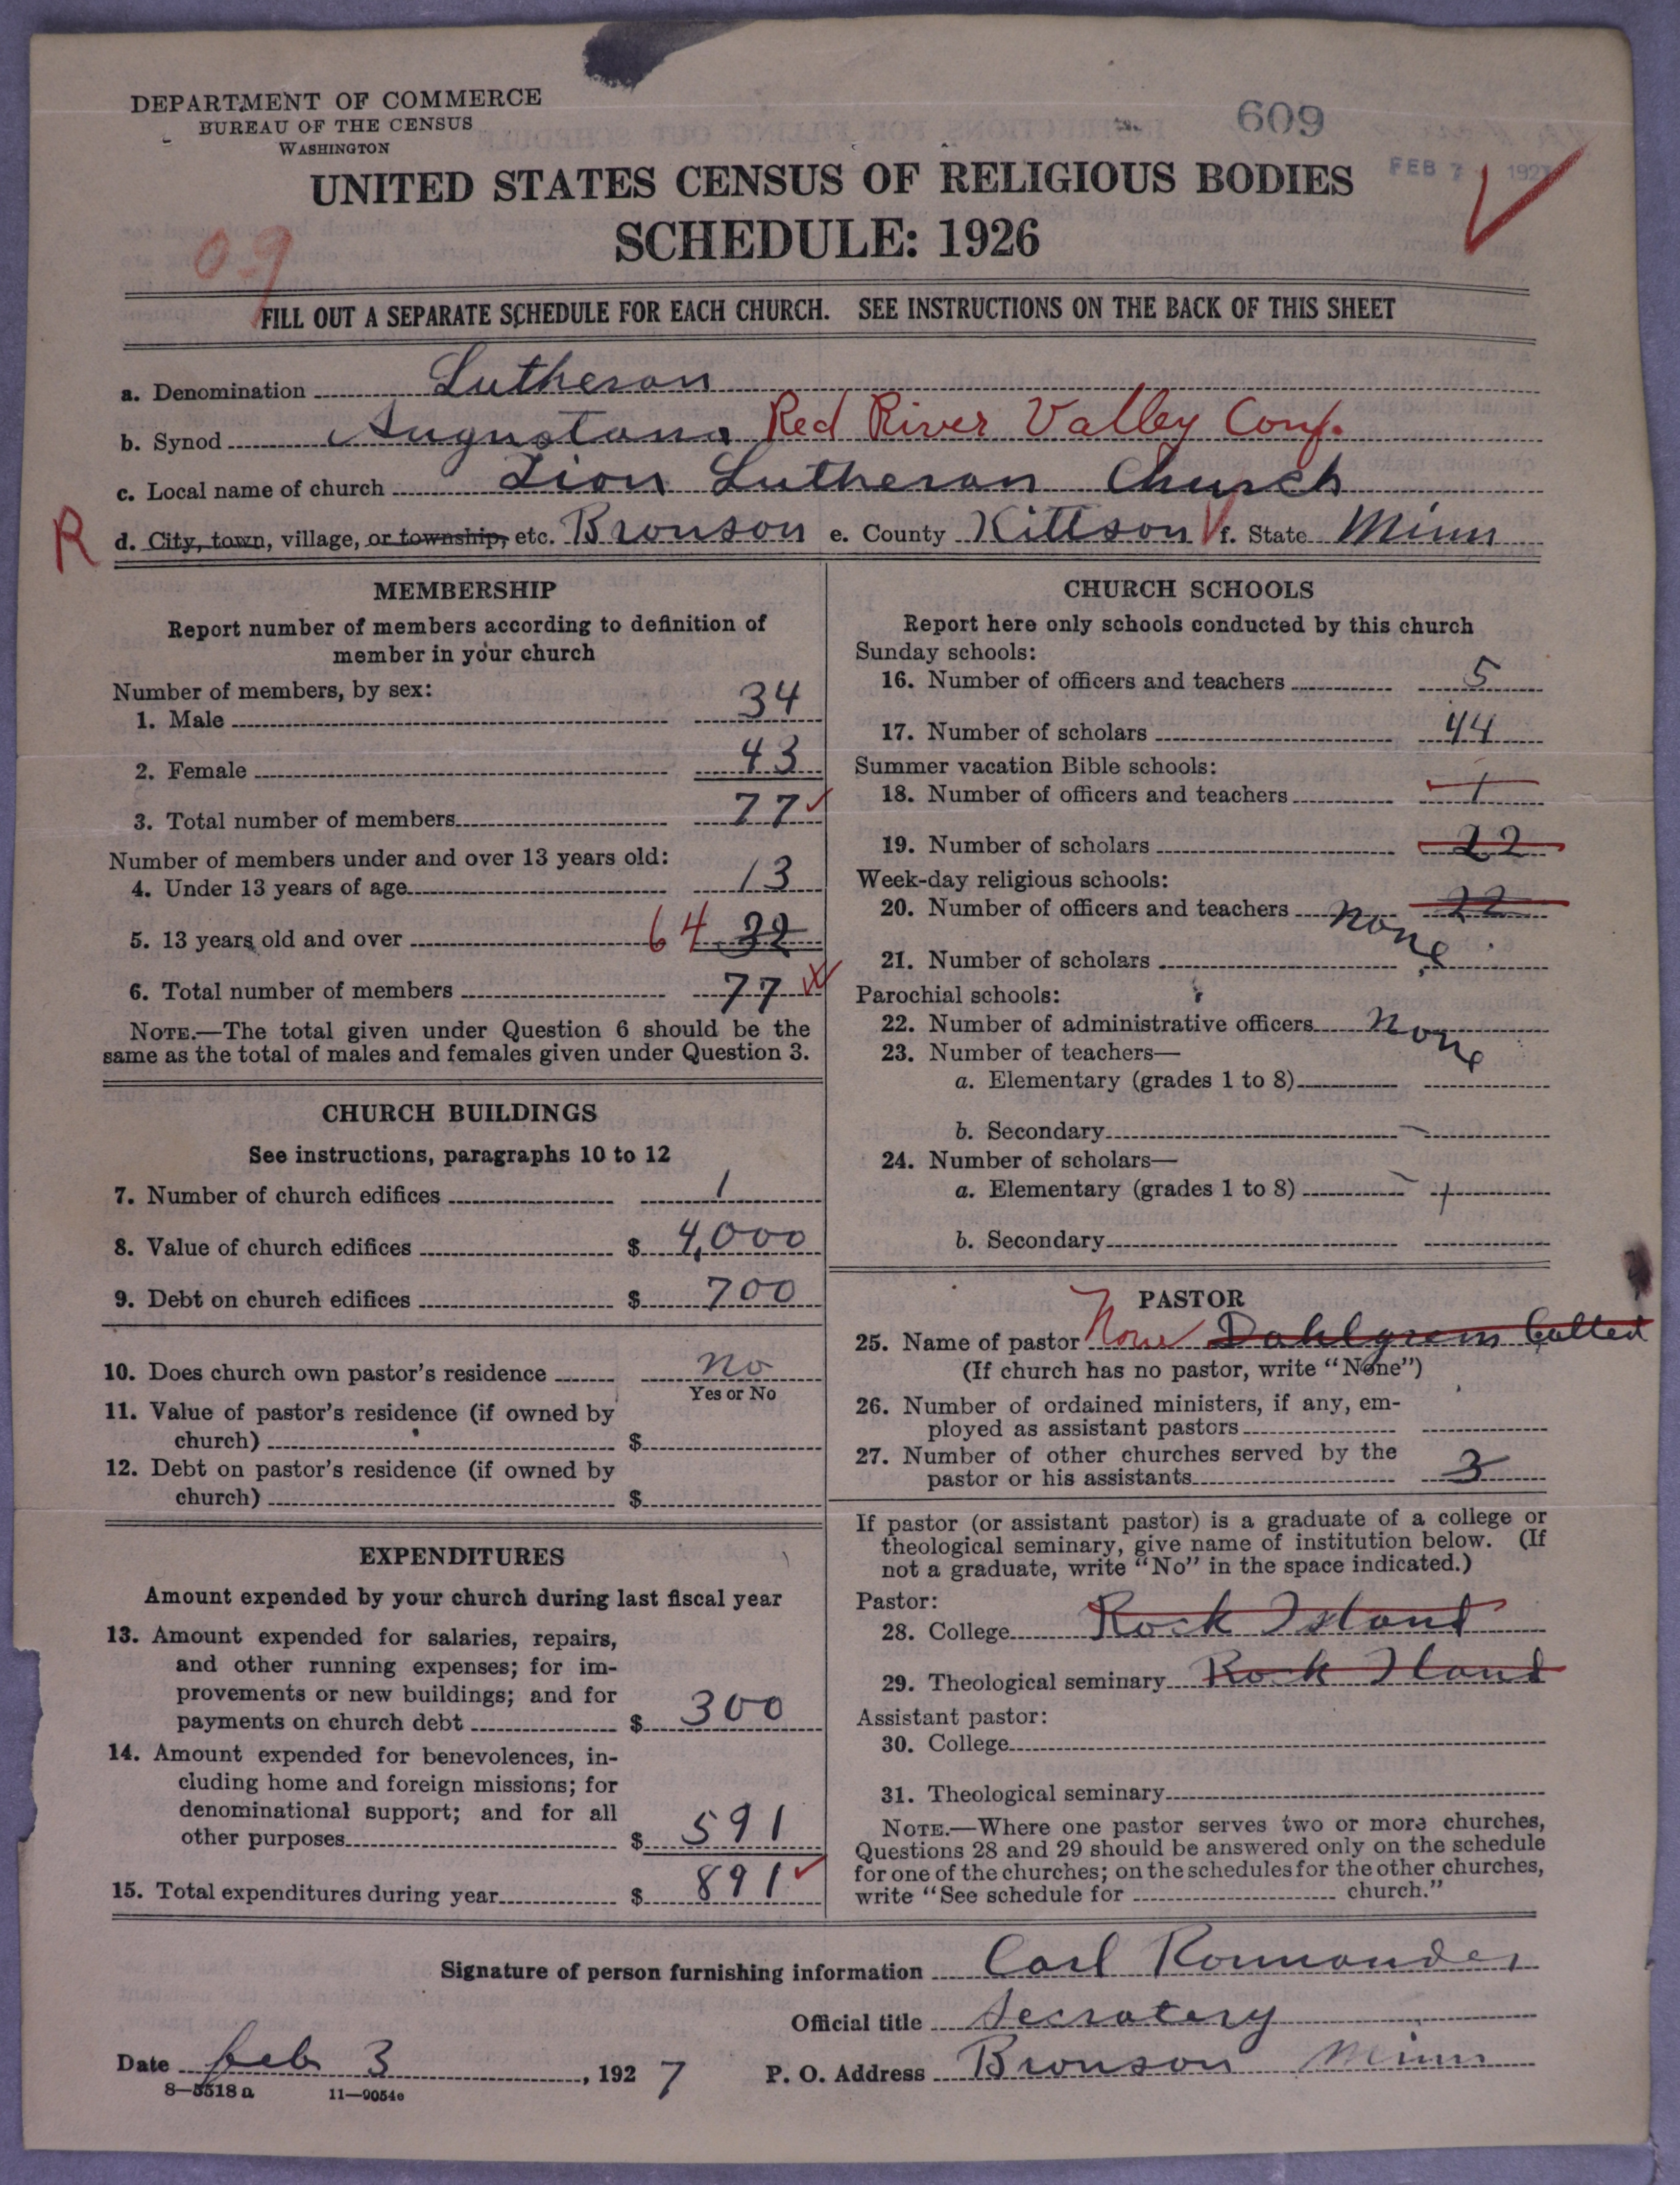 DEPARTMENT OF COMMERCE
BUREAU OF THE CENSUS
WASHINGTON
609
FEB 7 192
UNITED STATES CENSUS OF RELIGIOUS BODIES
SCHEDULE: 1926
09
FILL OUT A SEPARATE SCHEDULE FOR EACH CHURCH. SEE INSTRUCTIONS ON THE BACK OF THIS SHEET
a. Denomination Lutheran
b. Synod Augustana Red River Valley Conf.
c. Local name of church Zion Lutheran Church
R d. City, town, village, or township, etc. Bronson e. County Kittson f. State Minn
MEMBERSHIP
Report number of members according to definition of
member in your church
Number of members, by sex:
1. Male 34
2. Female 43
3. Total number of members 77
Number of members under and over 13 years old:
4. Under 13 years of age 13
5. 13 years old and over 64 32
6. Total number of members 77
NOTE.—The total given under Question 6 should be the
same as the total of males and females given under Question 3.
CHURCH BUILDINGS
See instructions, paragraphs 10 to 12
7. Number of church edifices 1
8. Value of church edifices $ 4,000
9. Debt on church edifices $ 700
10. Does church own pastor's residence no
Yes or No
11. Value of pastor's residence (if owned by
church) $
12. Debt on pastor's residence (if owned by
church) $
EXPENDITURES
Amount expended by your church during last fiscal year
13. Amount expended for salaries, repairs,
and other running expenses; for im-
provements or new buildings; and for
payments on church debt $ 300
14. Amount expended for benevolences, in-
cluding home and foreign missions; for
denominational support; and for all
other purposes $ 591
15. Total expenditures during year $ 891
CHURCH SCHOOLS
Report here only schools conducted by this church
Sunday schools:
16. Number of officers and teachers 5
17. Number of scholars 44
Summer vacation Bible schools:
18. Number of officers and teachers 1
19. Number of scholars 22
Week-day religious schools:
20. Number of officers and teachers none 22
21. Number of scholars
Parochial schools:
22. Number of administrative officers none
23. Number of teachers—
a. Elementary (grades 1 to 8)
b. Secondary
24. Number of scholars—
a. Elementary (grades 1 to 8)
b. Secondary
PASTOR
25. Name of pastor None Dahlgren Called
(If church has no pastor, write "None")
26. Number of ordained ministers, if any, em-
ployed as assistant pastors
27. Number of other churches served by the
pastor or his assistants 3
If pastor (or assistant pastor) is a graduate of a college or
theological seminary, give name of institution below. (If
not a graduate, write "No" in the space indicated.)
Pastor:
28. College Rock Island
29. Theological seminary Rock Iland
Assistant pastor:
30. College
31. Theological seminary
NOTE.—Where one pastor serves two or more churches,
Questions 28 and 29 should be answered only on the schedule
for one of the churches; on the schedules for the other churches,
write "See schedule for church."
Signature of person furnishing information Carl
Official title Secratery
Date Feb 3, 1927 P. O. Address Bronson Minn
8—5518a 11—9054e